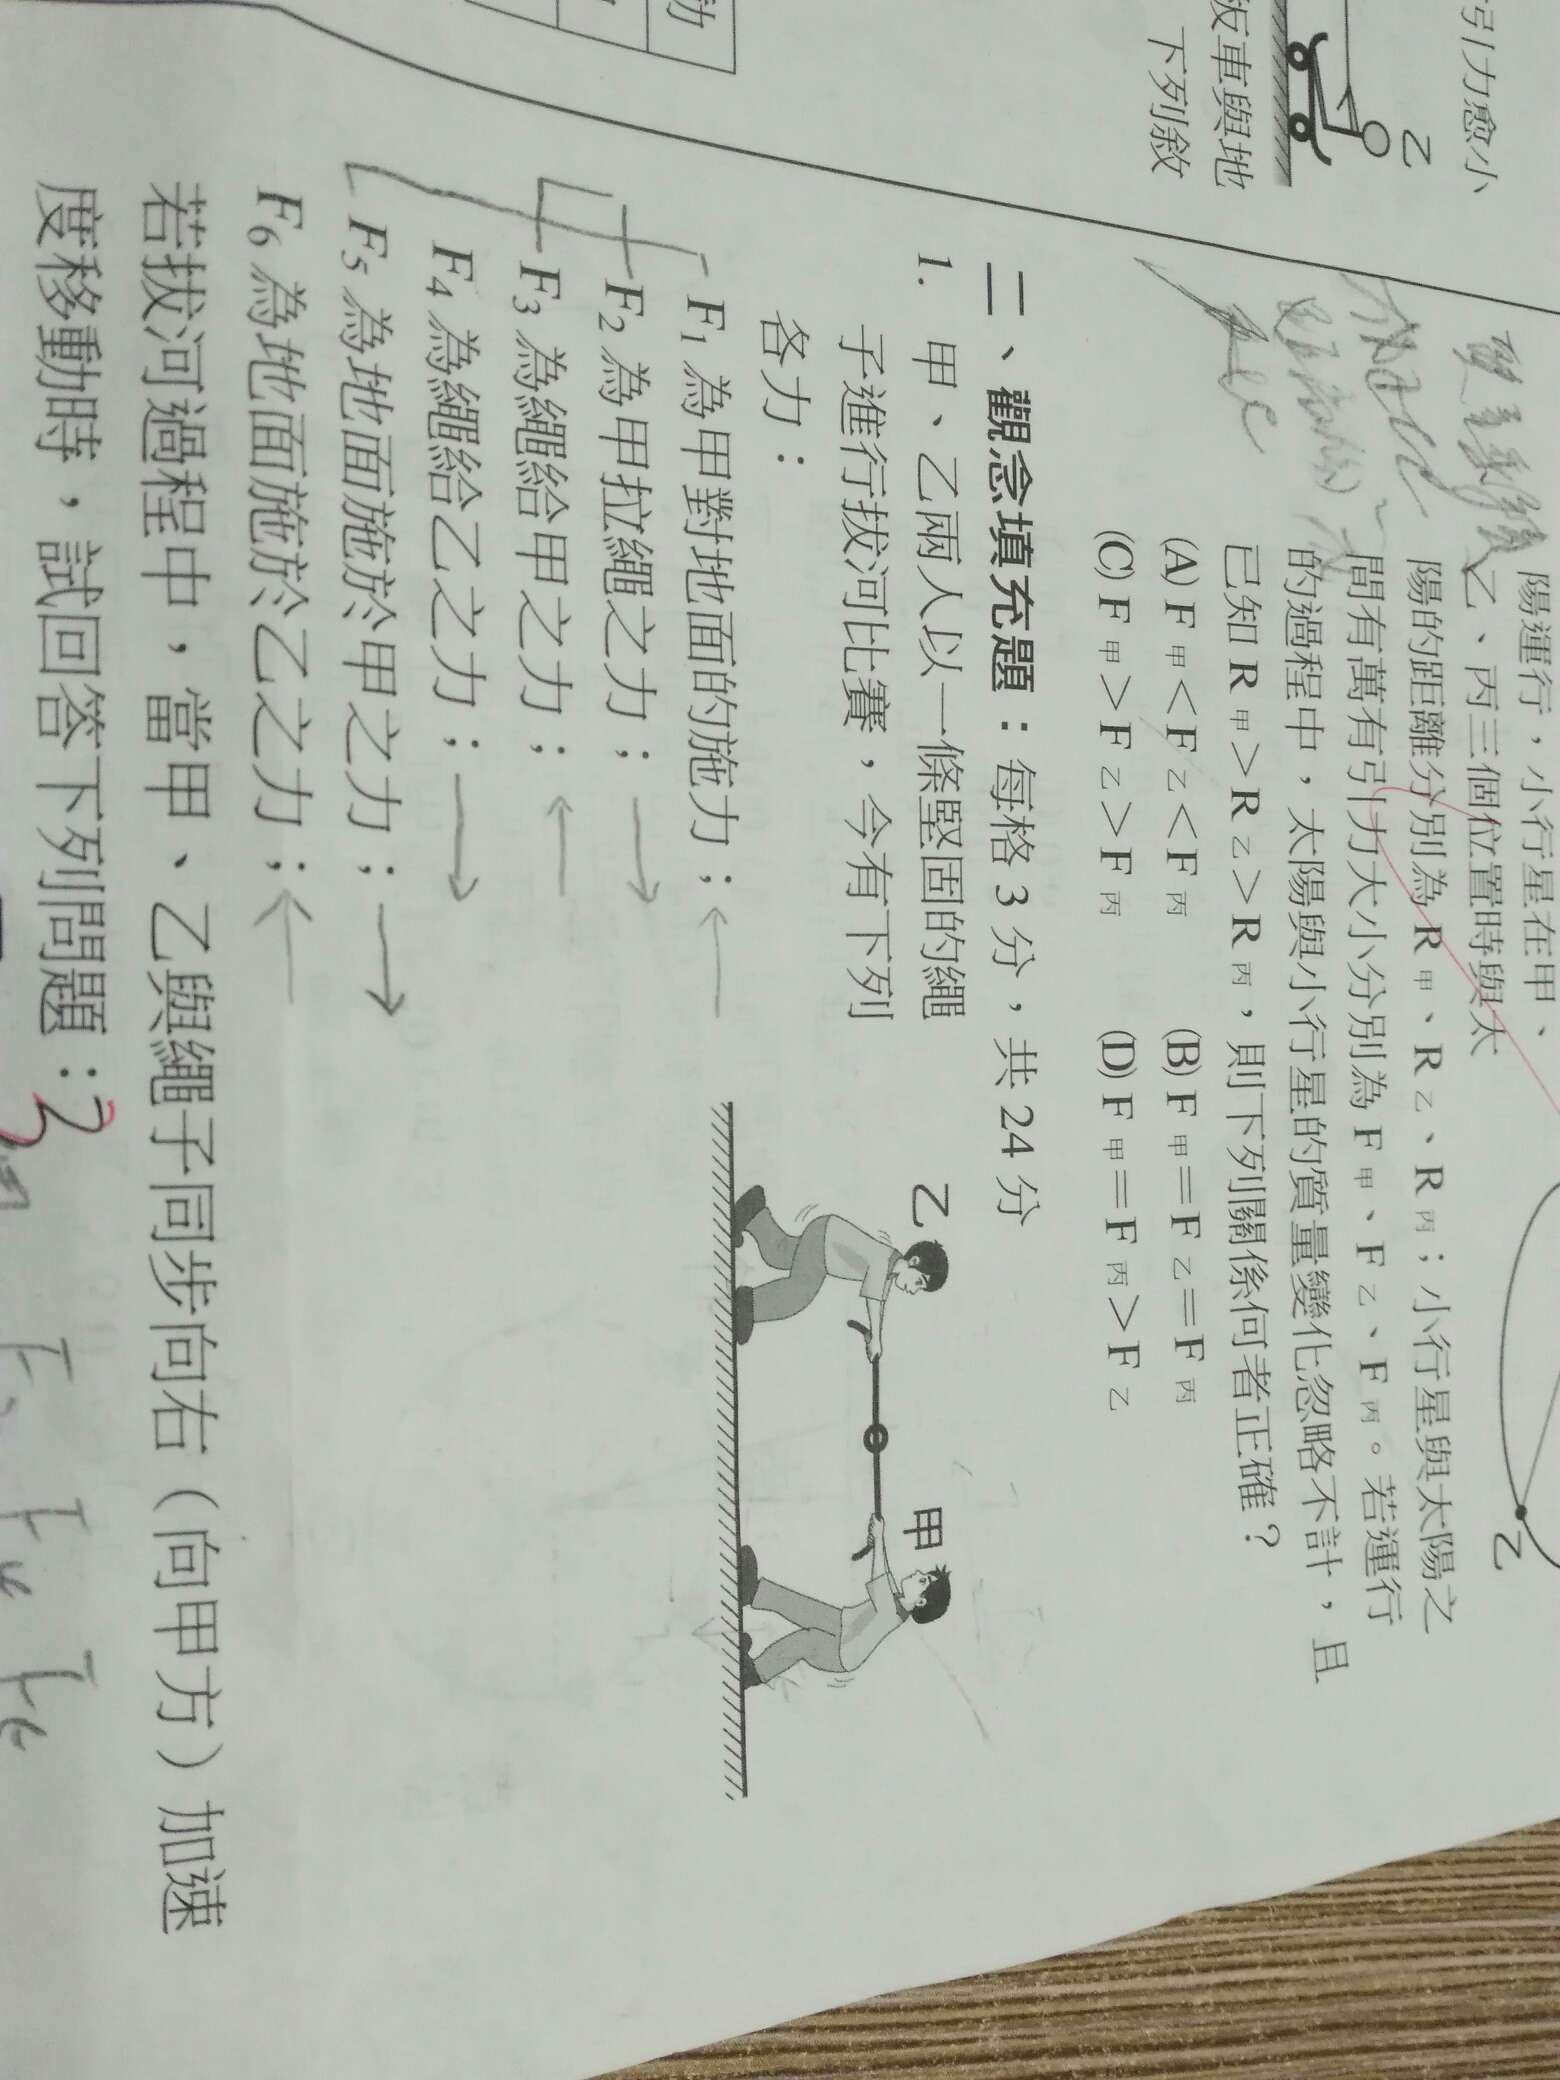 引力愈小
乙
板車與地
下列敘
動
陽運行，小行星在甲、
乙、丙三個位置時與太
陽的距離分別為 R甲、R乙、R丙；小行星與太陽之
間有萬有引力大小分別為 F甲、F乙、F丙。若運行
的過程中，太陽與小行星的質量變化忽略不計，且
已知 R甲＞R乙＞R丙，則下列關係何者正確？
(A) F甲＜F乙＜F丙
(B) F甲＝F乙＝F丙
(C) F甲＞F乙＞F丙
(D) F甲＝F丙＞F乙
乙
二、觀念填充題：每格 3 分，共 24 分
1. 甲、乙兩人以一條堅固的繩
子進行拔河比賽，今有下列
各力：
乙
甲
F1 為甲對地面的施力；←
F2 為甲拉繩之力；→
F3 為繩給甲之力；←
F4 為繩給乙之力；→
F5 為地面施於甲之力；→
F6 為地面施於乙之力；←
若拔河過程中，當甲、乙與繩子同步向右（向甲方）加速
度移動時，試回答下列問題：